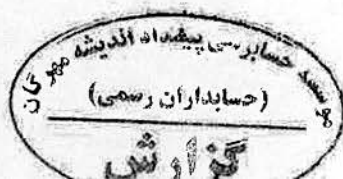 موسسه حسابرسی پیشداد اندیشه مهرگان
(حسابداران رسمی)
گزارش